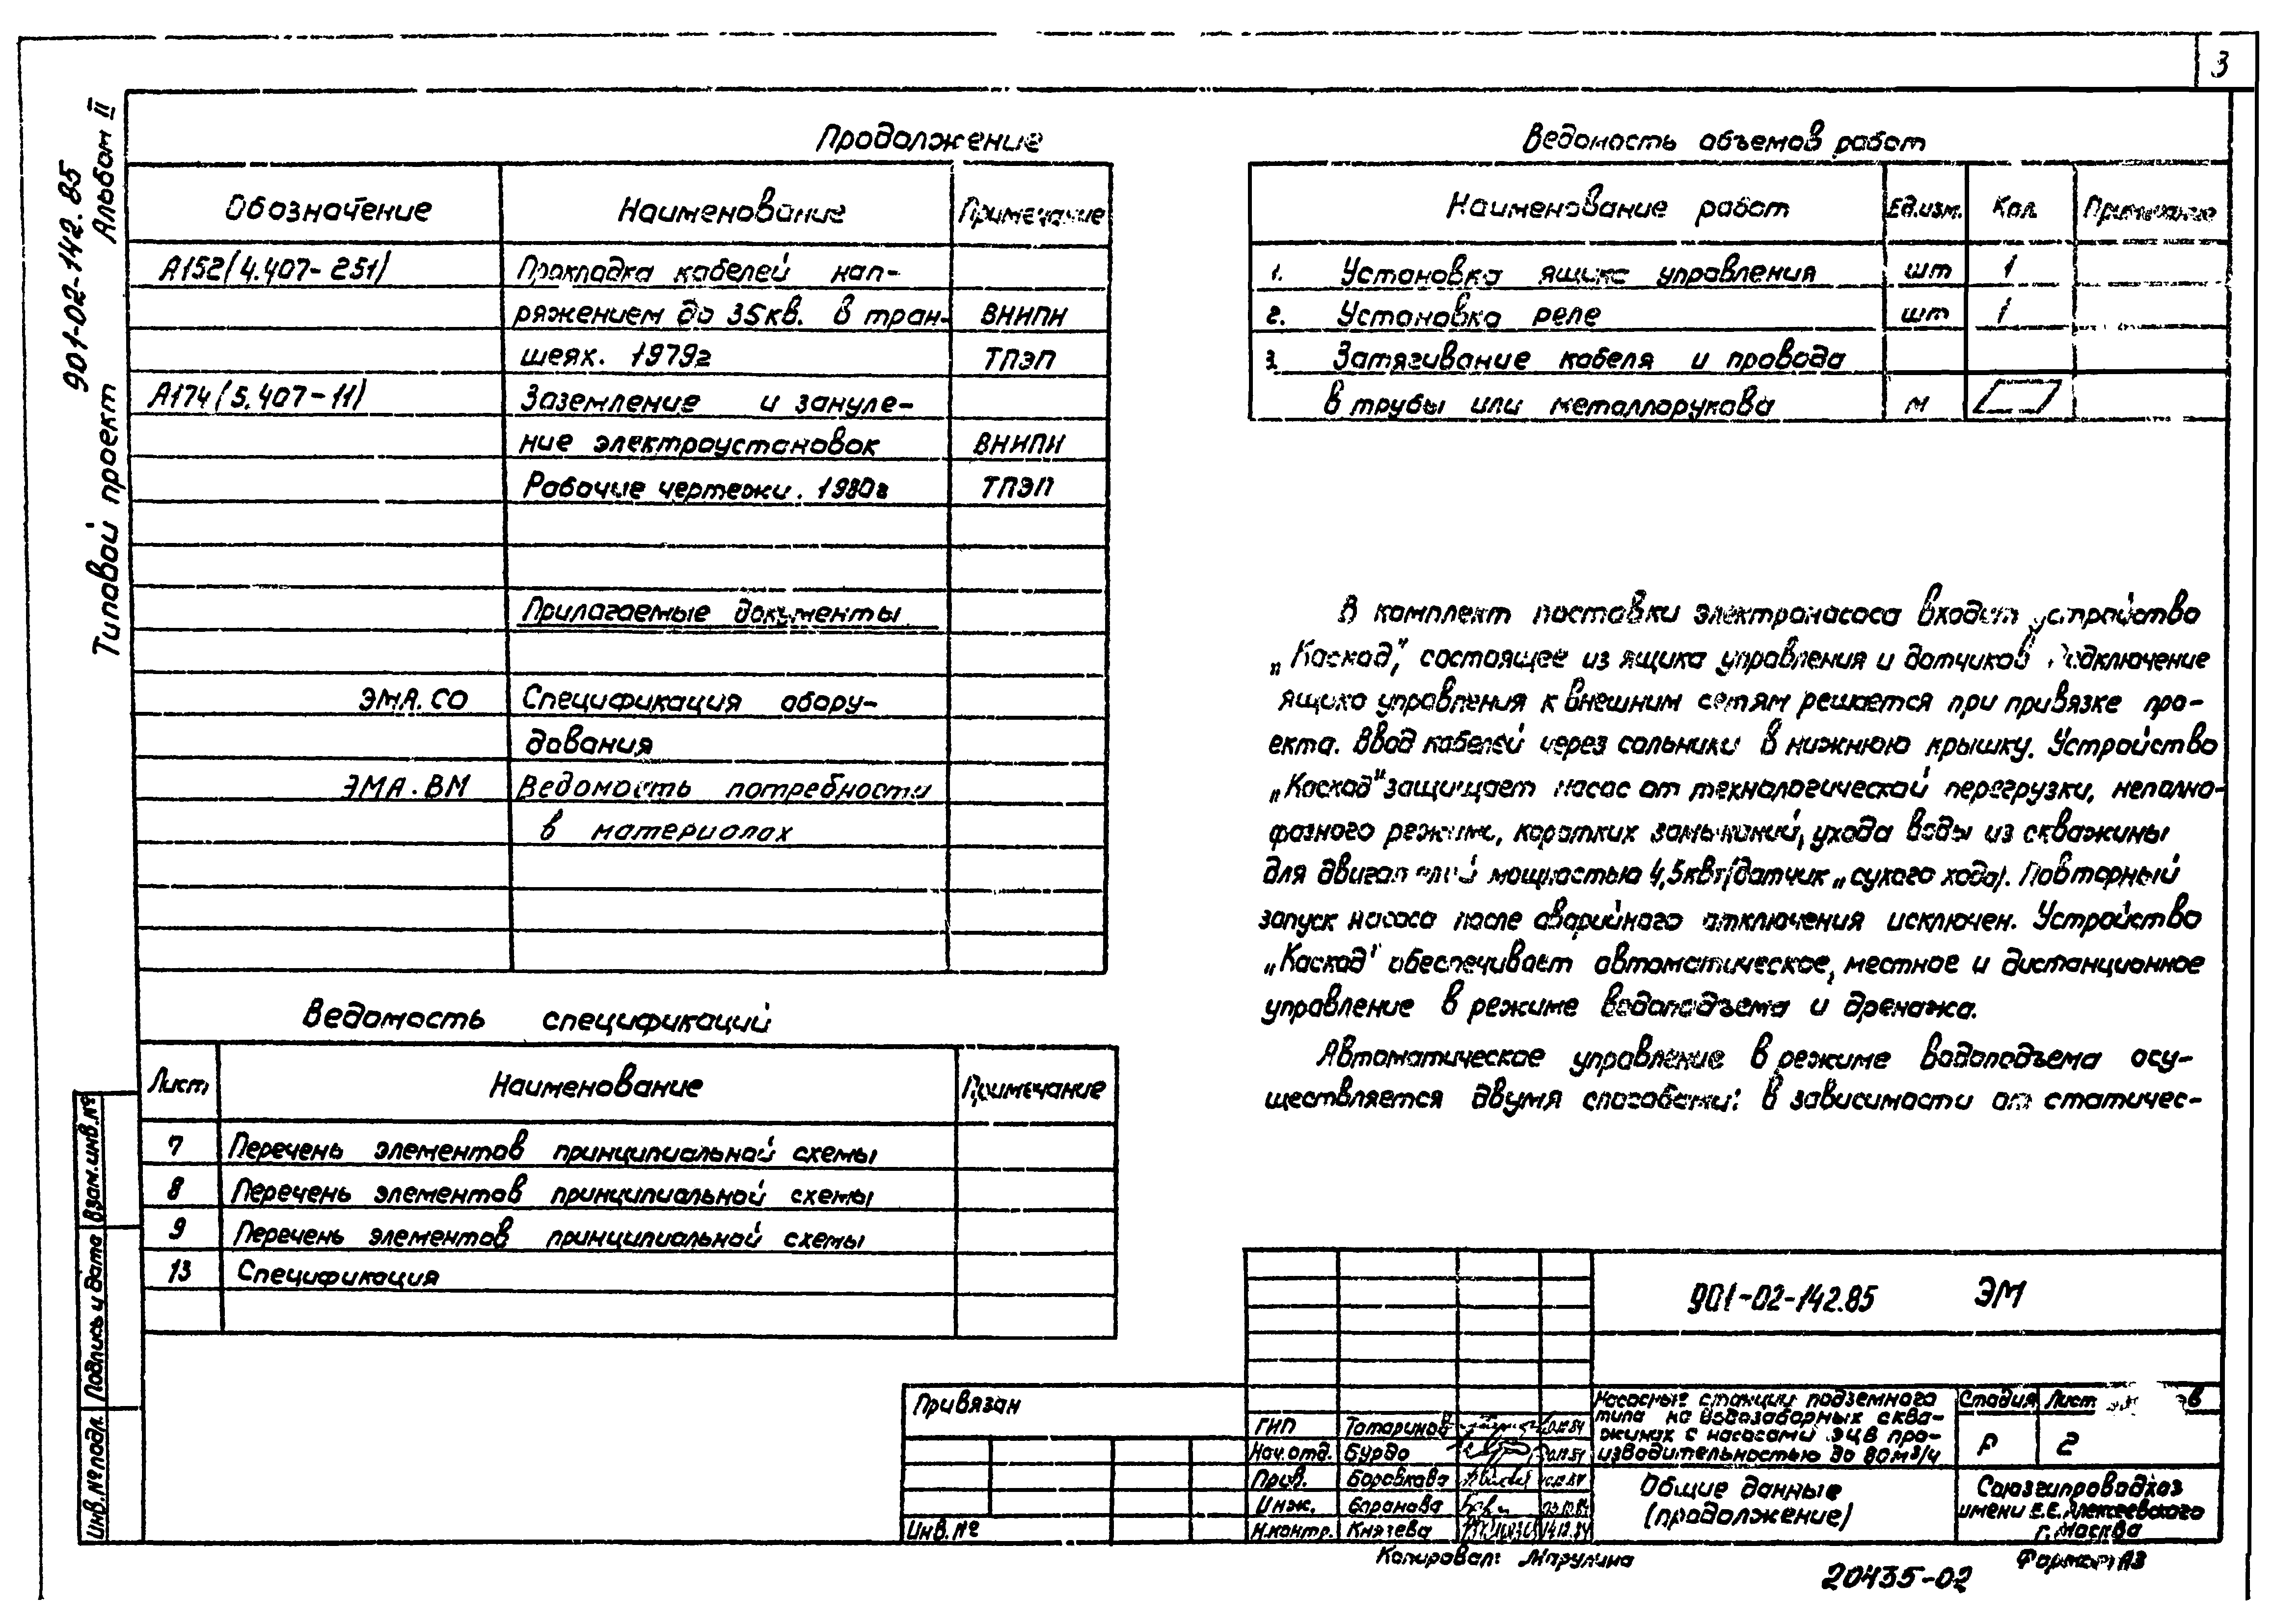 3
901-02-142.85
Альбом II
Типовой проект
Продолжение
Обозначение Наименование Примечание
А152(4.407-251) Прокладка кабелей нап-
ряжением до 35кв. в тран- ВНИПИ
шеях. 1979г ТПЭП
А174(5.407-11) Заземление и зануле-
ние электроустановок ВНИПИ
Рабочие чертежи. 1980г ТПЭП
Прилагаемые документы
ЭМА.СО Спецификация обору-
дования
ЭМА.ВМ Ведомость потребности
в материалах
Ведомость спецификаций
Лист Наименование Примечание
7 Перечень элементов принципиальной схемы
8 Перечень элементов принципиальной схемы
9 Перечень элементов принципиальной схемы
13 Спецификация
Ведомость объемов работ
Наименование работ Ед.изм. Кол. Примечание
1. Установка ящика управления шт 1
2. Установка реле шт 1
3. Затягивание кабеля и провода
в трубы или металлорукова м
В комплект поставки электронасоса входит устройство
„Каскад”, состоящее из ящика управления и датчиков Подключение
ящика управления к внешним сетям решается при привязке про-
екта. Ввод кабелей через сальники в нижнюю крышку. Устройство
„Каскад” защищает насос от технологической перегрузки, неполно-
фазного режима, коротких замыканий, ухода воды из скважины
для двигателей мощностью 4,5квт(датчик „сухого хода). Повторный
запуск насоса после аварийного отключения исключен. Устройство
„Каскад” обеспечивает автоматическое, местное и дистанционное
управление в режиме водоподъема и дренажа.
Автоматическое управление в режиме водоподъема осу-
ществляется двумя способами: в зависимости от статичес-
Взам.инв.№
Подпись и дата
Инв.№подл.
Привязан
Инв.№
901-02-142.85 ЭМ
ГИП Татаринов
Нач.отд. Бурдо
Пров. Боровкова
Инж. Баранова 03.12.84
Н.контр. Князева 14.12.84
Насосные станции подземного
типа на водозаборных сква-
жинах с насосами ЭЦВ про-
изводительностью до 80м³/ч
Стадия Лист
Р 2
Общие данные
(продолжение)
Союзгипроводхоз
имени Е.Е.Алексеевского
г.Москва
Копировал: Марулина
20435-02
Формат А3